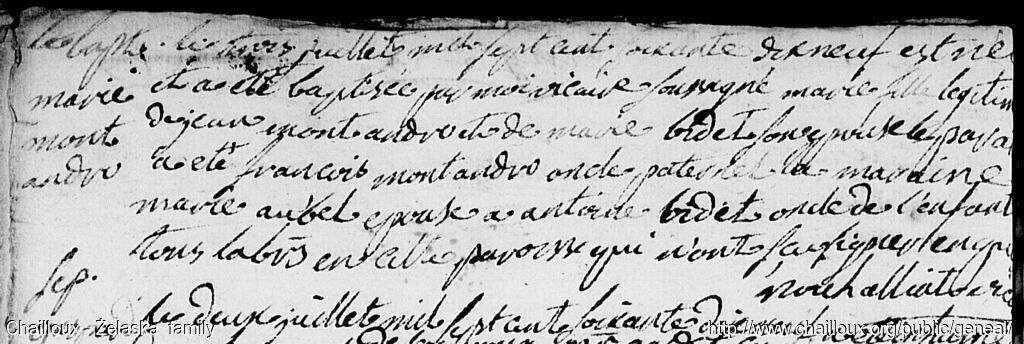 le bapt. le trois juillet mil sept cent soixante dix neuf est née
marie et a eté baptisée par moi vicaire soussigné marie fille legitim
mont de jean montandro et de marie bidet son epouse le para
andro a eté francois montandro oncle paternel la maraine
marie aubel epouse a antoine bidet oncle de l'enfant
tous labrs en cette paroisse qui n'ont su signer
sep.
le deux juillet mil sept cent soixante dix
Chailloux - Zelaska family
http://www.chailloux.org/public/geneal/